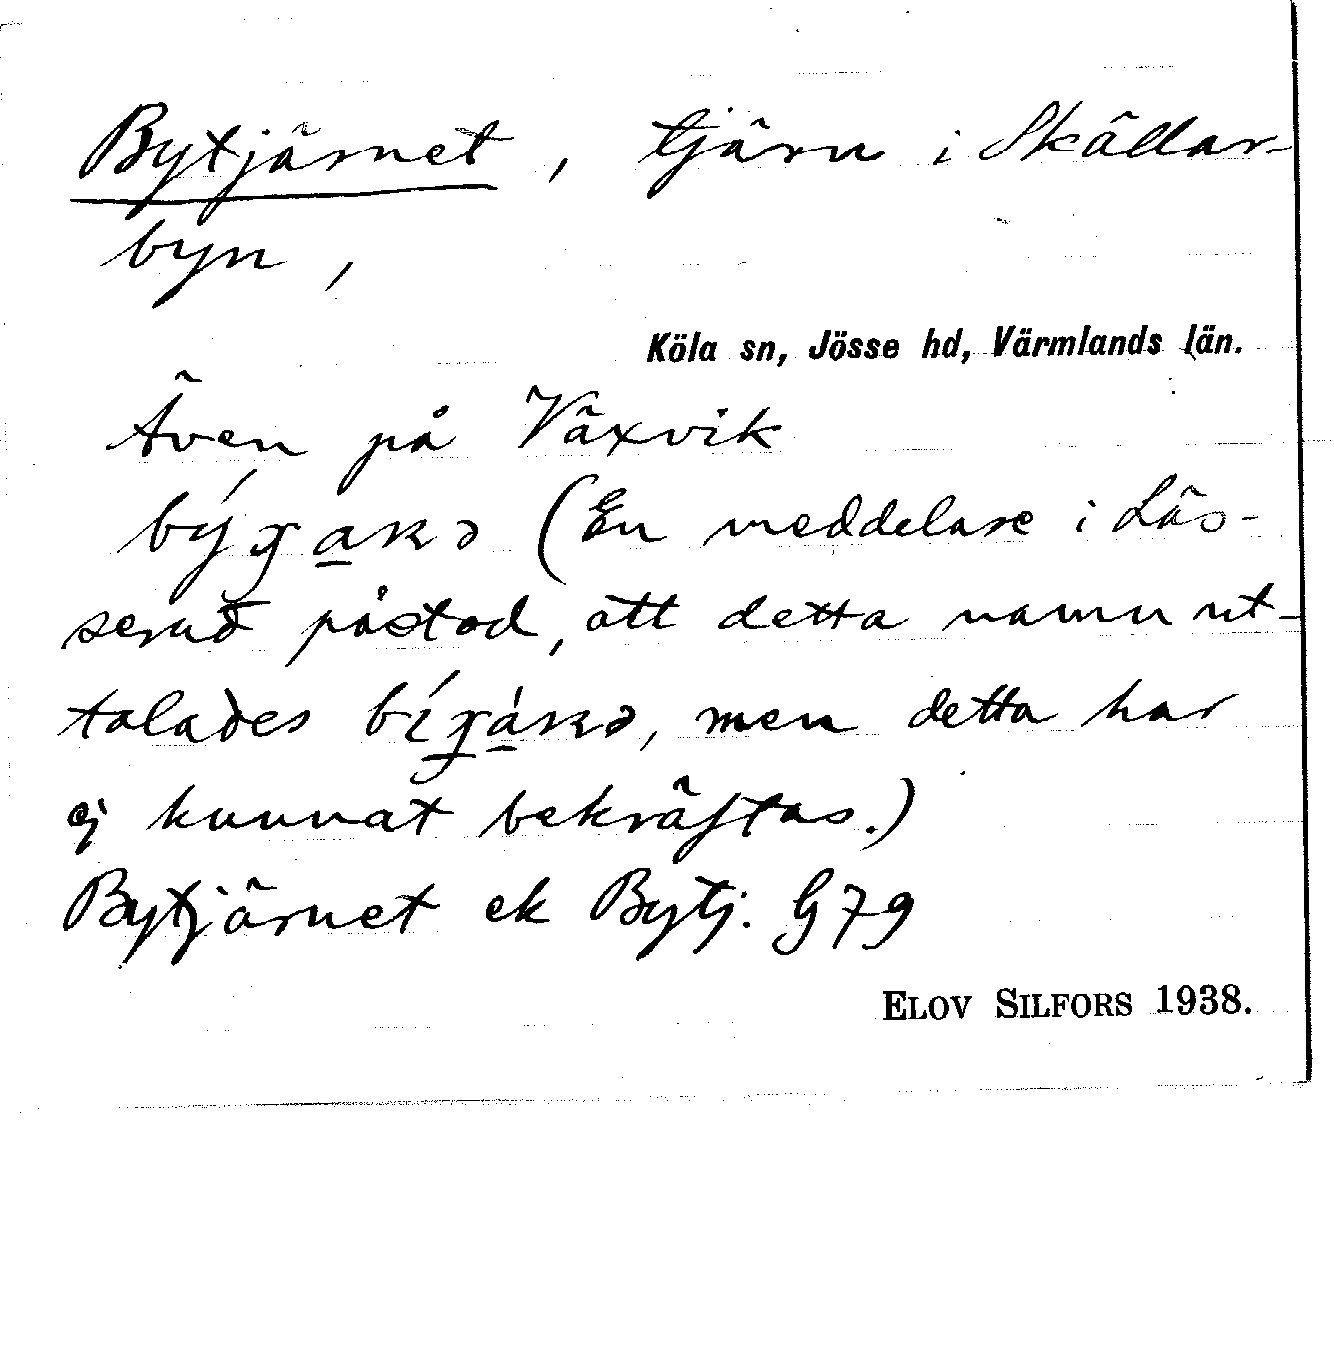 Bytjärnet, tjärn i Skällar-
byn,
Köla sn, Jösse hd, Värmlands län.
Även på Växvik
(En meddelare i Läs-
serud påstod, att detta namn ut-
talades men detta har
ej kunnat bekräftas.)
Bytjärnet ek Bytj. G79
ELOV SILFORS 1938.